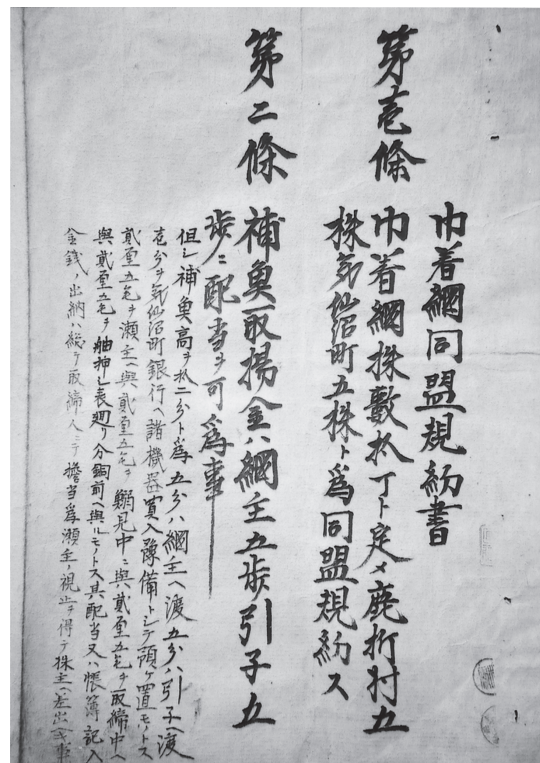 巾着網同盟規約書
第壱條
巾着網株數拾丁ト定メ鹿折村五
株気仙沼町五株ト為同盟規約ス
第二條
補魚取揚金ハ網主五歩引子五
歩ニ配当ヲ可為事
但シ補魚高ヲ拾二分ト為五分ハ網主ヘ渡五分ハ引子ヘ渡
壱分ヲ気仙沼町銀行ヘ諸機器買入豫備トシテ預ケ置モノトス
貳厘五毛ヲ瀬主ヘ與貳厘五毛ヲ鰯見中ニ與貳厘五毛ヲ取締中ヘ
與貳厘五毛ヲ舳押シ表廻リ分銅前ヘ與ルモノトス其配当又ハ帳簿記入
金錢ノ出納ハ總テ取締人ニテ擔当為瀬主ノ視止ヲ得テ株主ヘ差出ス事